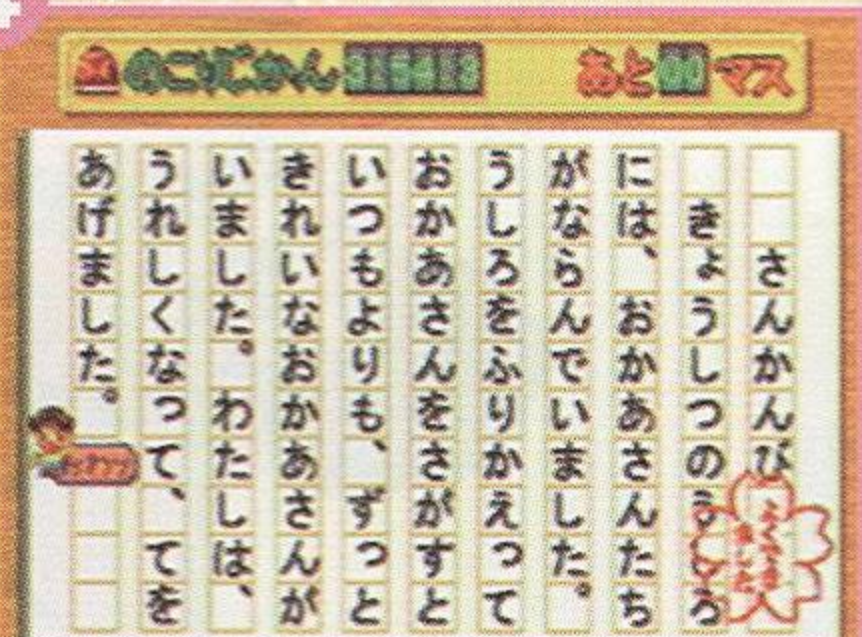 のこりじかん
あと00マス
さんかんび
きょうしつのうしろ
には、おかあさんたち
がならんでいました。
うしろをふりかえって
おかあさんをさがすと
いつもよりも、ずっと
きれいなおかあさんが
いました。わたしは、
うれしくなって、てを
あげました。